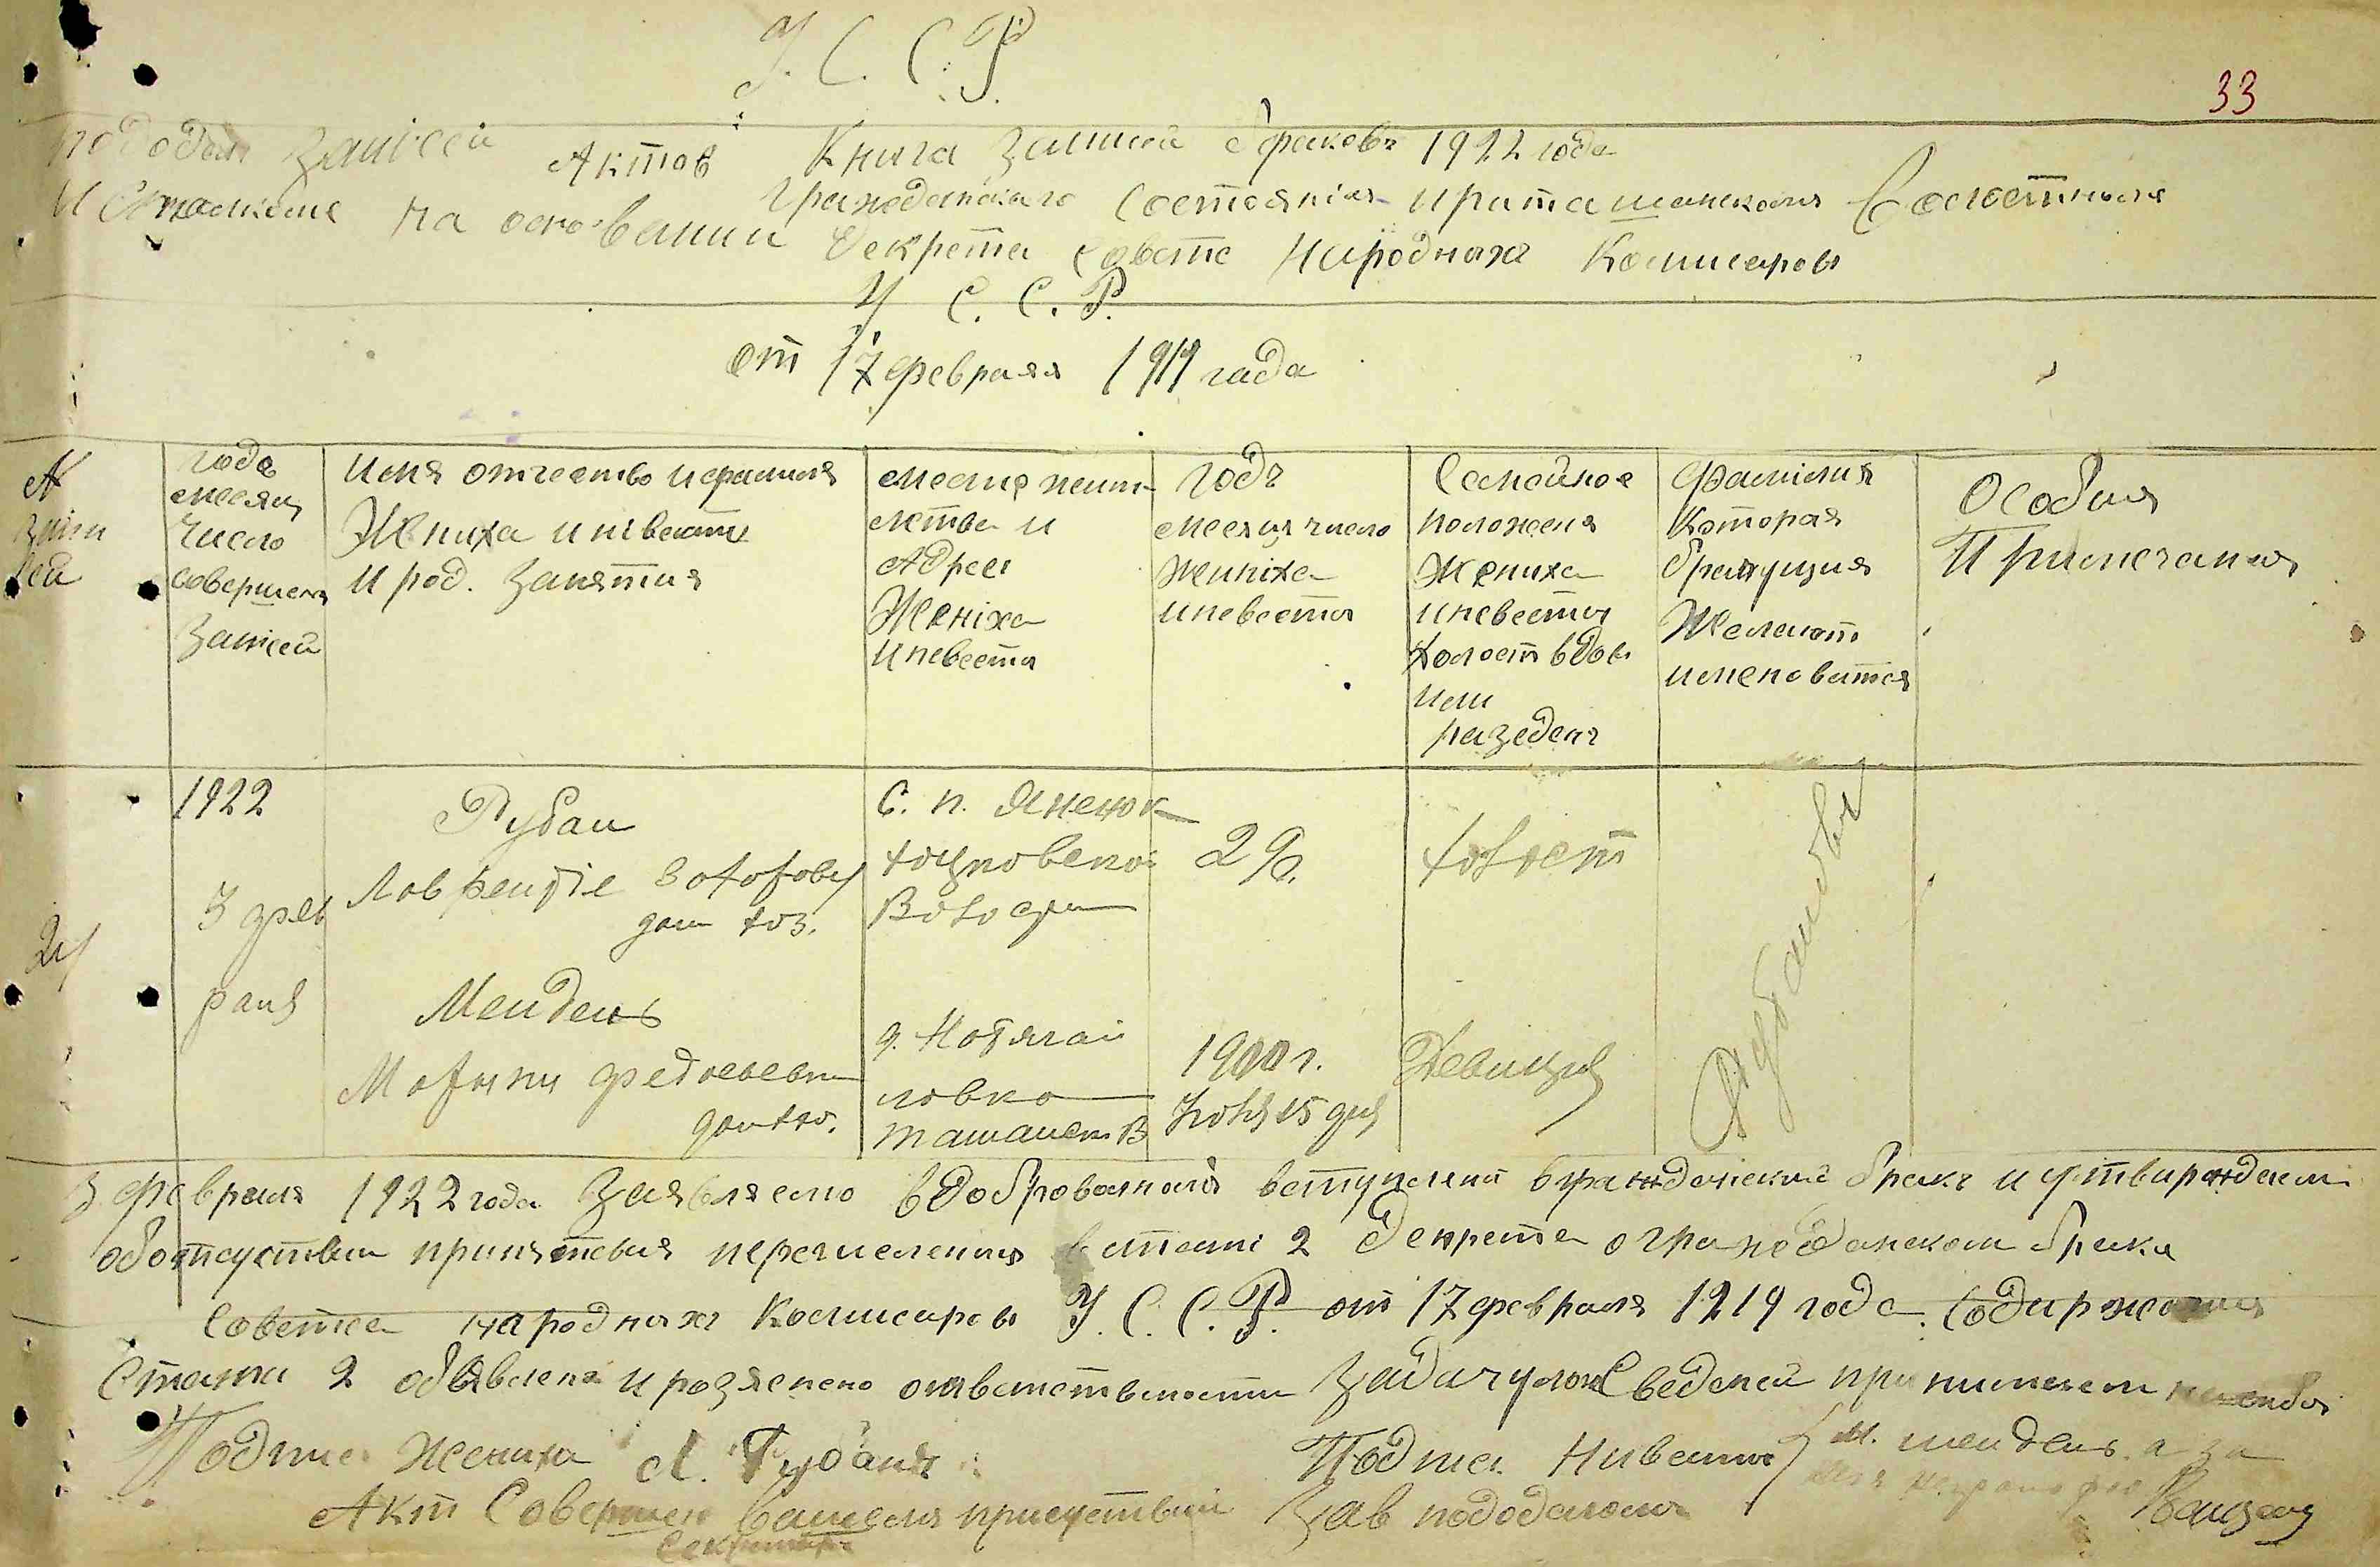 У. С. С. Р.
33
пододел Записей Актов Книга Записей браковъ 1922 года
Гражданскаго Состоянiя при Ташанском Волостном
Исполкоме на основании Декрета Совета Народных Комисаров
У С. С. Р.
от 17 февраля 1919 года
№ запи сей
года месяц Число совершения Записей
имя отчество и фамилия Жениха и нiвесты и род. Занятия
место жит- ельства и Адрес Женiха и невесты
Годъ месяц число женiха и невесты
Семейное положеня Жениха и невесты холост вдов или разведенъ
Фамилия Которая брачущия Желают именоватся
Особыя Примечания
1922
3 фев
раля
24
Рубан
Лаврентiе
дом хоз.
Мендень
Мотрии Федосеевни
С. п.
хоцковской
Волости
д.
ловка
Ташанск В
29.
1900 г.
15 дня
холост
Девица
Рубановы
3 февраля 1922 года Заявляемо в добровольном вступлении в гражданский бракъ и утвирждаем
оботсутствии принятствия перечисленых в статi 2 Декрета о гражданском брака
Совета народных Комисаров У. С. С. Р. от 17 февраля 1919 года. Содиржания
Статьи 2 обявлена и розяснено ответственности За дачу лож Сведений принимаем на себя
Подпис Жениха Л. Рубанъ
Подпис Нивесты М. Мендень а за
Акт Совершен в присутствии Зав пододелом
Секритарь